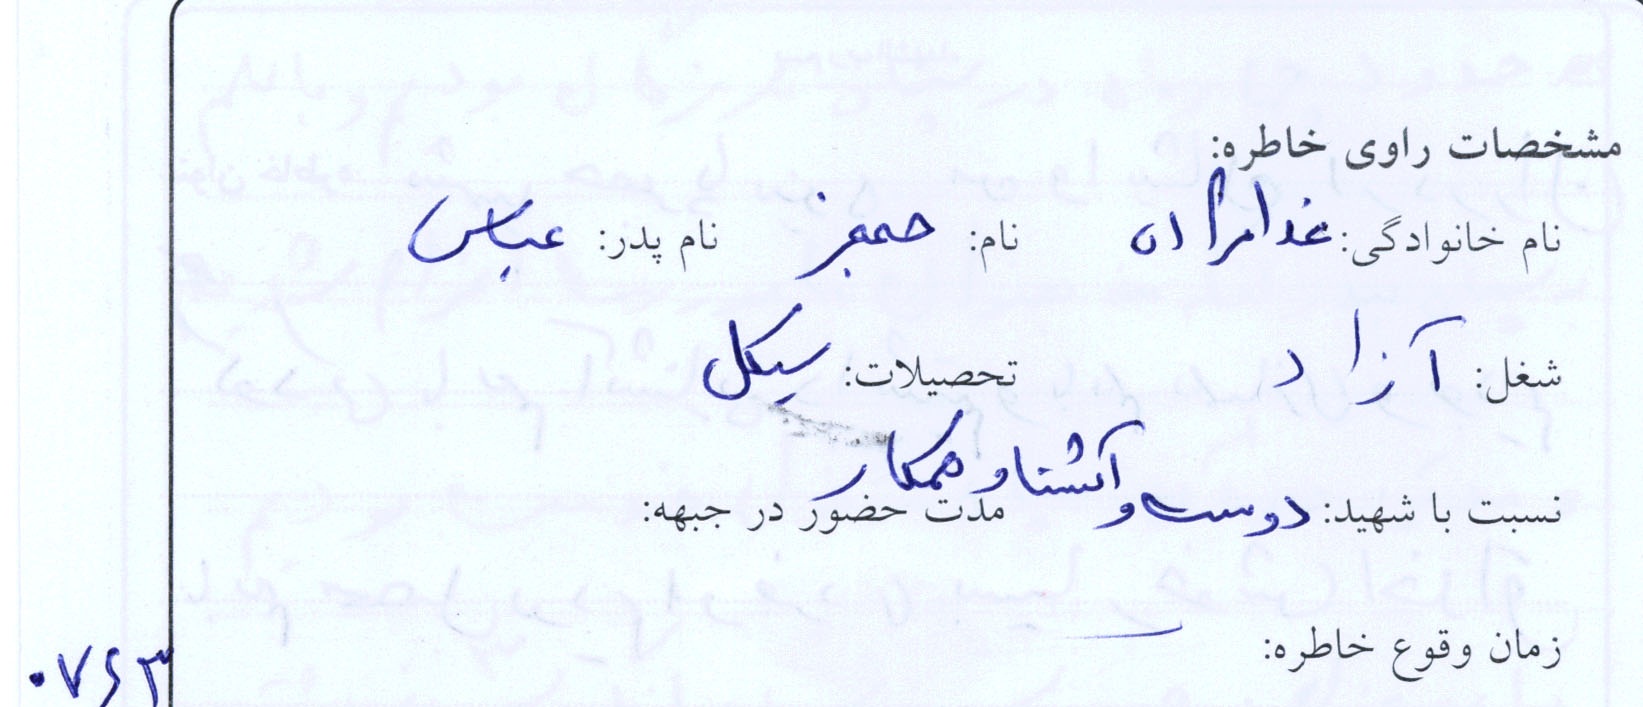 مشخصات راوی خاطره:
نام خانوادگی: نام: جعفر نام پدر: عباس
شغل: آزاد تحصیلات: سیکل
نسبت با شهید: دوست و آشنا و همکار مدت حضور در جبهه:
زمان وقوع خاطره:
۰۷۶۳